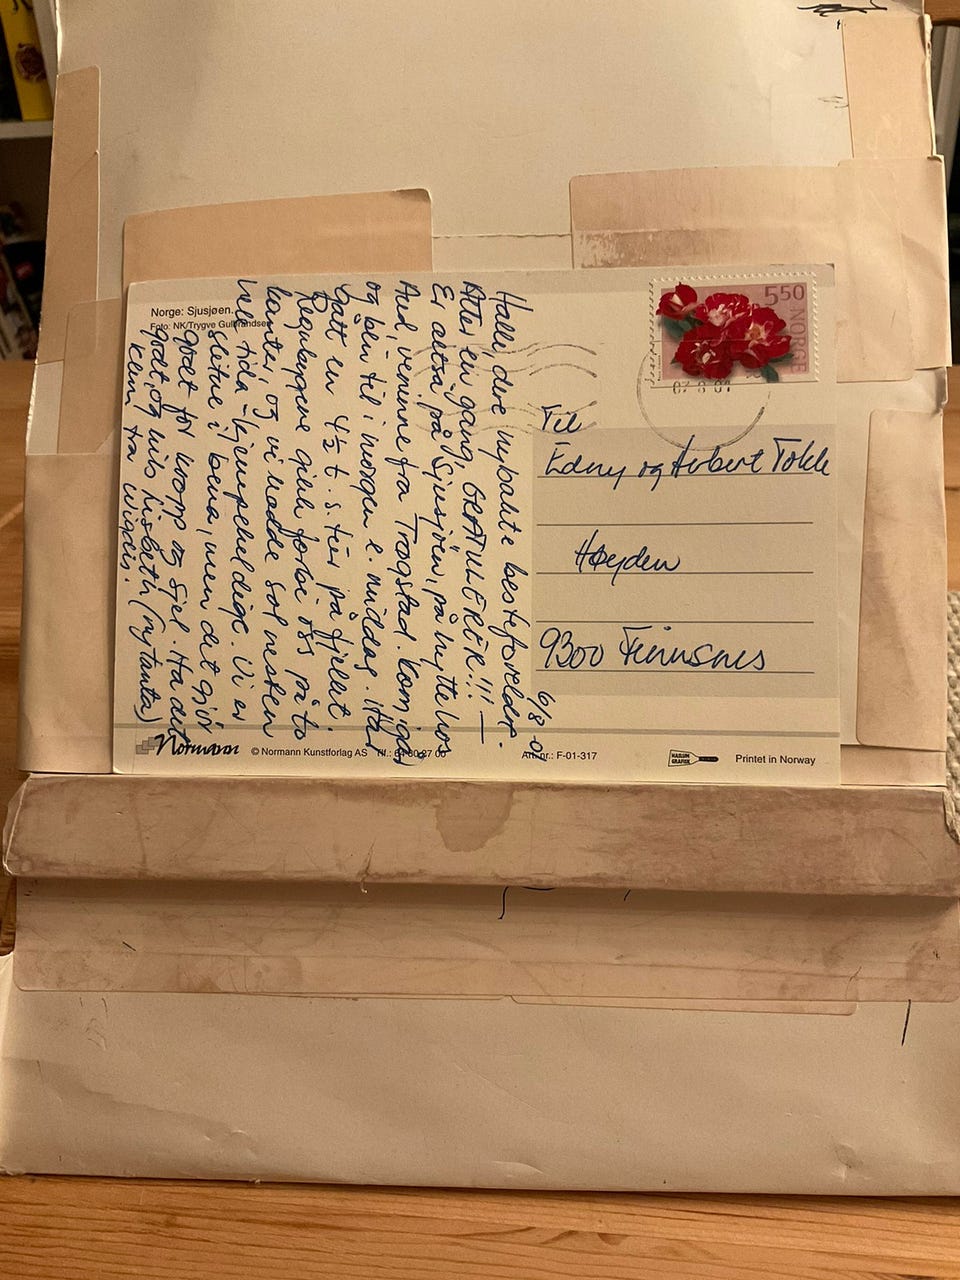 Norge: Sjusjøen.
Foto: NK/Trygve Gulbrandsen
6/8-01
Hallo, dere nybakte besteforeldre.
Atter en gang, GRATULERER!!! —
Er altså på Sjusjøen, på hytte hos
Aud, venninne fra Trøgstad. Kom i går
og ben til i morgen e. middag. Har
gått en 4½ t.s. tur på fjellet.
Regnbygene gikk forbi oss på to
kanter, og vi hadde sol nesten
hele tida - kjempeheldige. Vi er
slitne i bena, men det gjør
godt for kropp og sjel. Ha det
godt, og hils Lisbeth (ny tanta)
Klem fra Wigdis.
5 50 NORGE
07 8 01
Til
Edny og Herbert Tokle
Høyden
9300 Finnsnes
Normann © Normann Kunstforlag AS Tlf.: 64 80 27 00 Art. nr.: F-01-317 HASLUM GRAFISK Printet in Norway